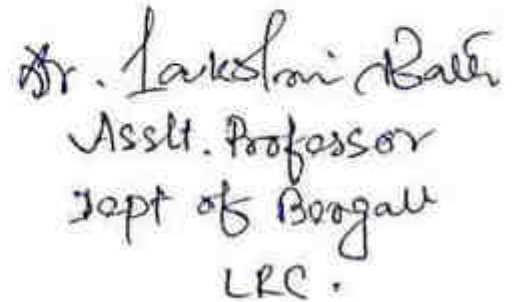 Dr. Lakshmi
Asstt. Professor
Dept of Bengali
LRC.